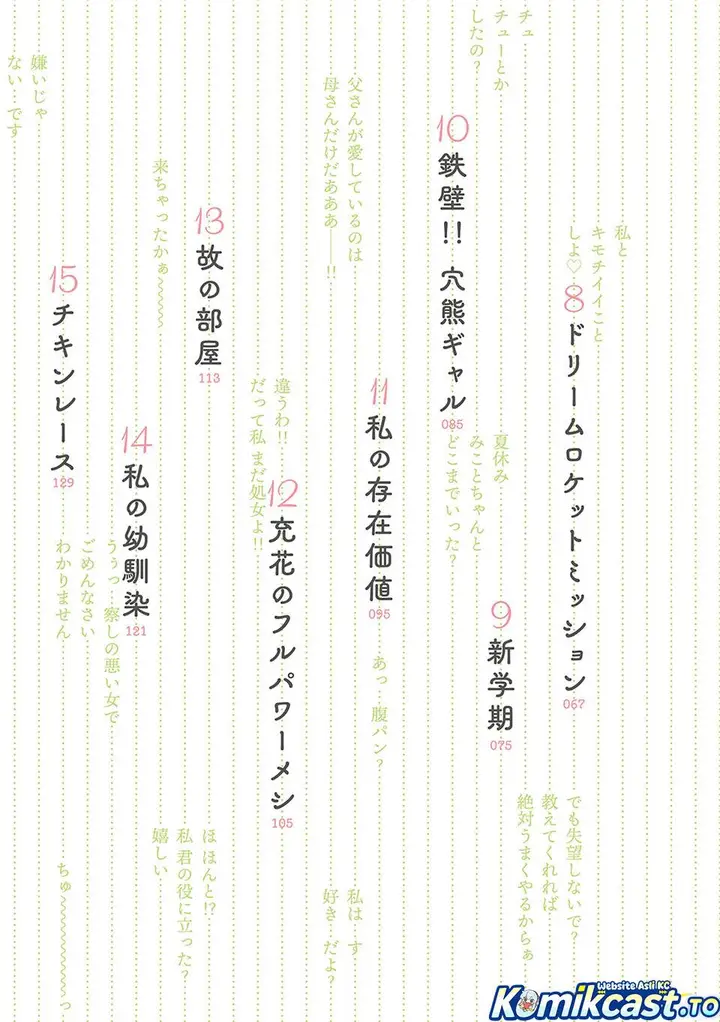 チュ
チューとか
したの?
私と
キモチイイこと
しよ♡
8
ドリームロケットミッション
067
夏休み
みことちゃんと
どこまでいった?
9
新学期
075
でも失望しないで?
教えてくれれば
絶対うまくやるからぁ
10
鉄壁!! 穴熊ギャル
085
父さんが愛しているのは
母さんだけだあああ――!!
11
私の存在価値
095
あっ…腹パン?
違うわ!!
だって私 まだ処女よ!!
12
充花のフルパワーメシ
105
私は す
好き だよ?
来ちゃったかぁ~~~~~
13
故の部屋
113
ほ ほんと!?
私 君の役に立った?
嬉しい
14
私の幼馴染
121
うぅっ…察しの悪い女で
ごめんなさい
わかりません
嫌いじゃ
ない…です
15
チキンレース
129
ちゅ~~~~~~~っ
Website Asli KC
Komikcast.TO